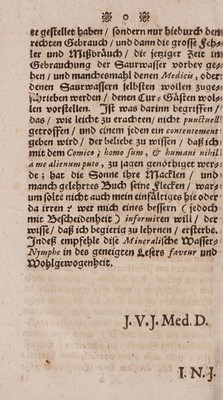 er gestellet haben / sondern nur hiedurch den
rechten Gebrauch / und dann die grosse Feh-
ler und Mißbräuch / die jetziger Zeit im
Gebrauchung der Saurwasser vorbey ge-
hen / und manchesmahl denen Medicis, oder
denen Saurwassern selbsten wollen zuge-
schrieben werden / denen Cur-Gästen wol-
len vorstellen. Ist was darinn betreffen /
das / wie leicht zu erachten / nicht punctuell
getroffen / und einem jeden ein contentement
geben wird / der beliebe zu wissen / daß ich
mit dem Comico; homo sum, & humani nihil
à me alienum puto, zu sagen genöthiget wer-
de; hat die Sonne ihre Macklen / und
manch gelehrtes Buch seine Flecken / war-
um solte nicht auch mein einfältiges hie oder
da irren? wer mich eines bessern (jedoch
mit Bescheidenheit) informiren will / der
wisse / daß ich begierig zu lehrnen / ersterbe.
Indeß empfehle dise Mineralische Wasser-
Nymphe in des geneigten Lesers faveur und
Wohlgewogenheit.
J. V. J. Med. D.
I. N. J.